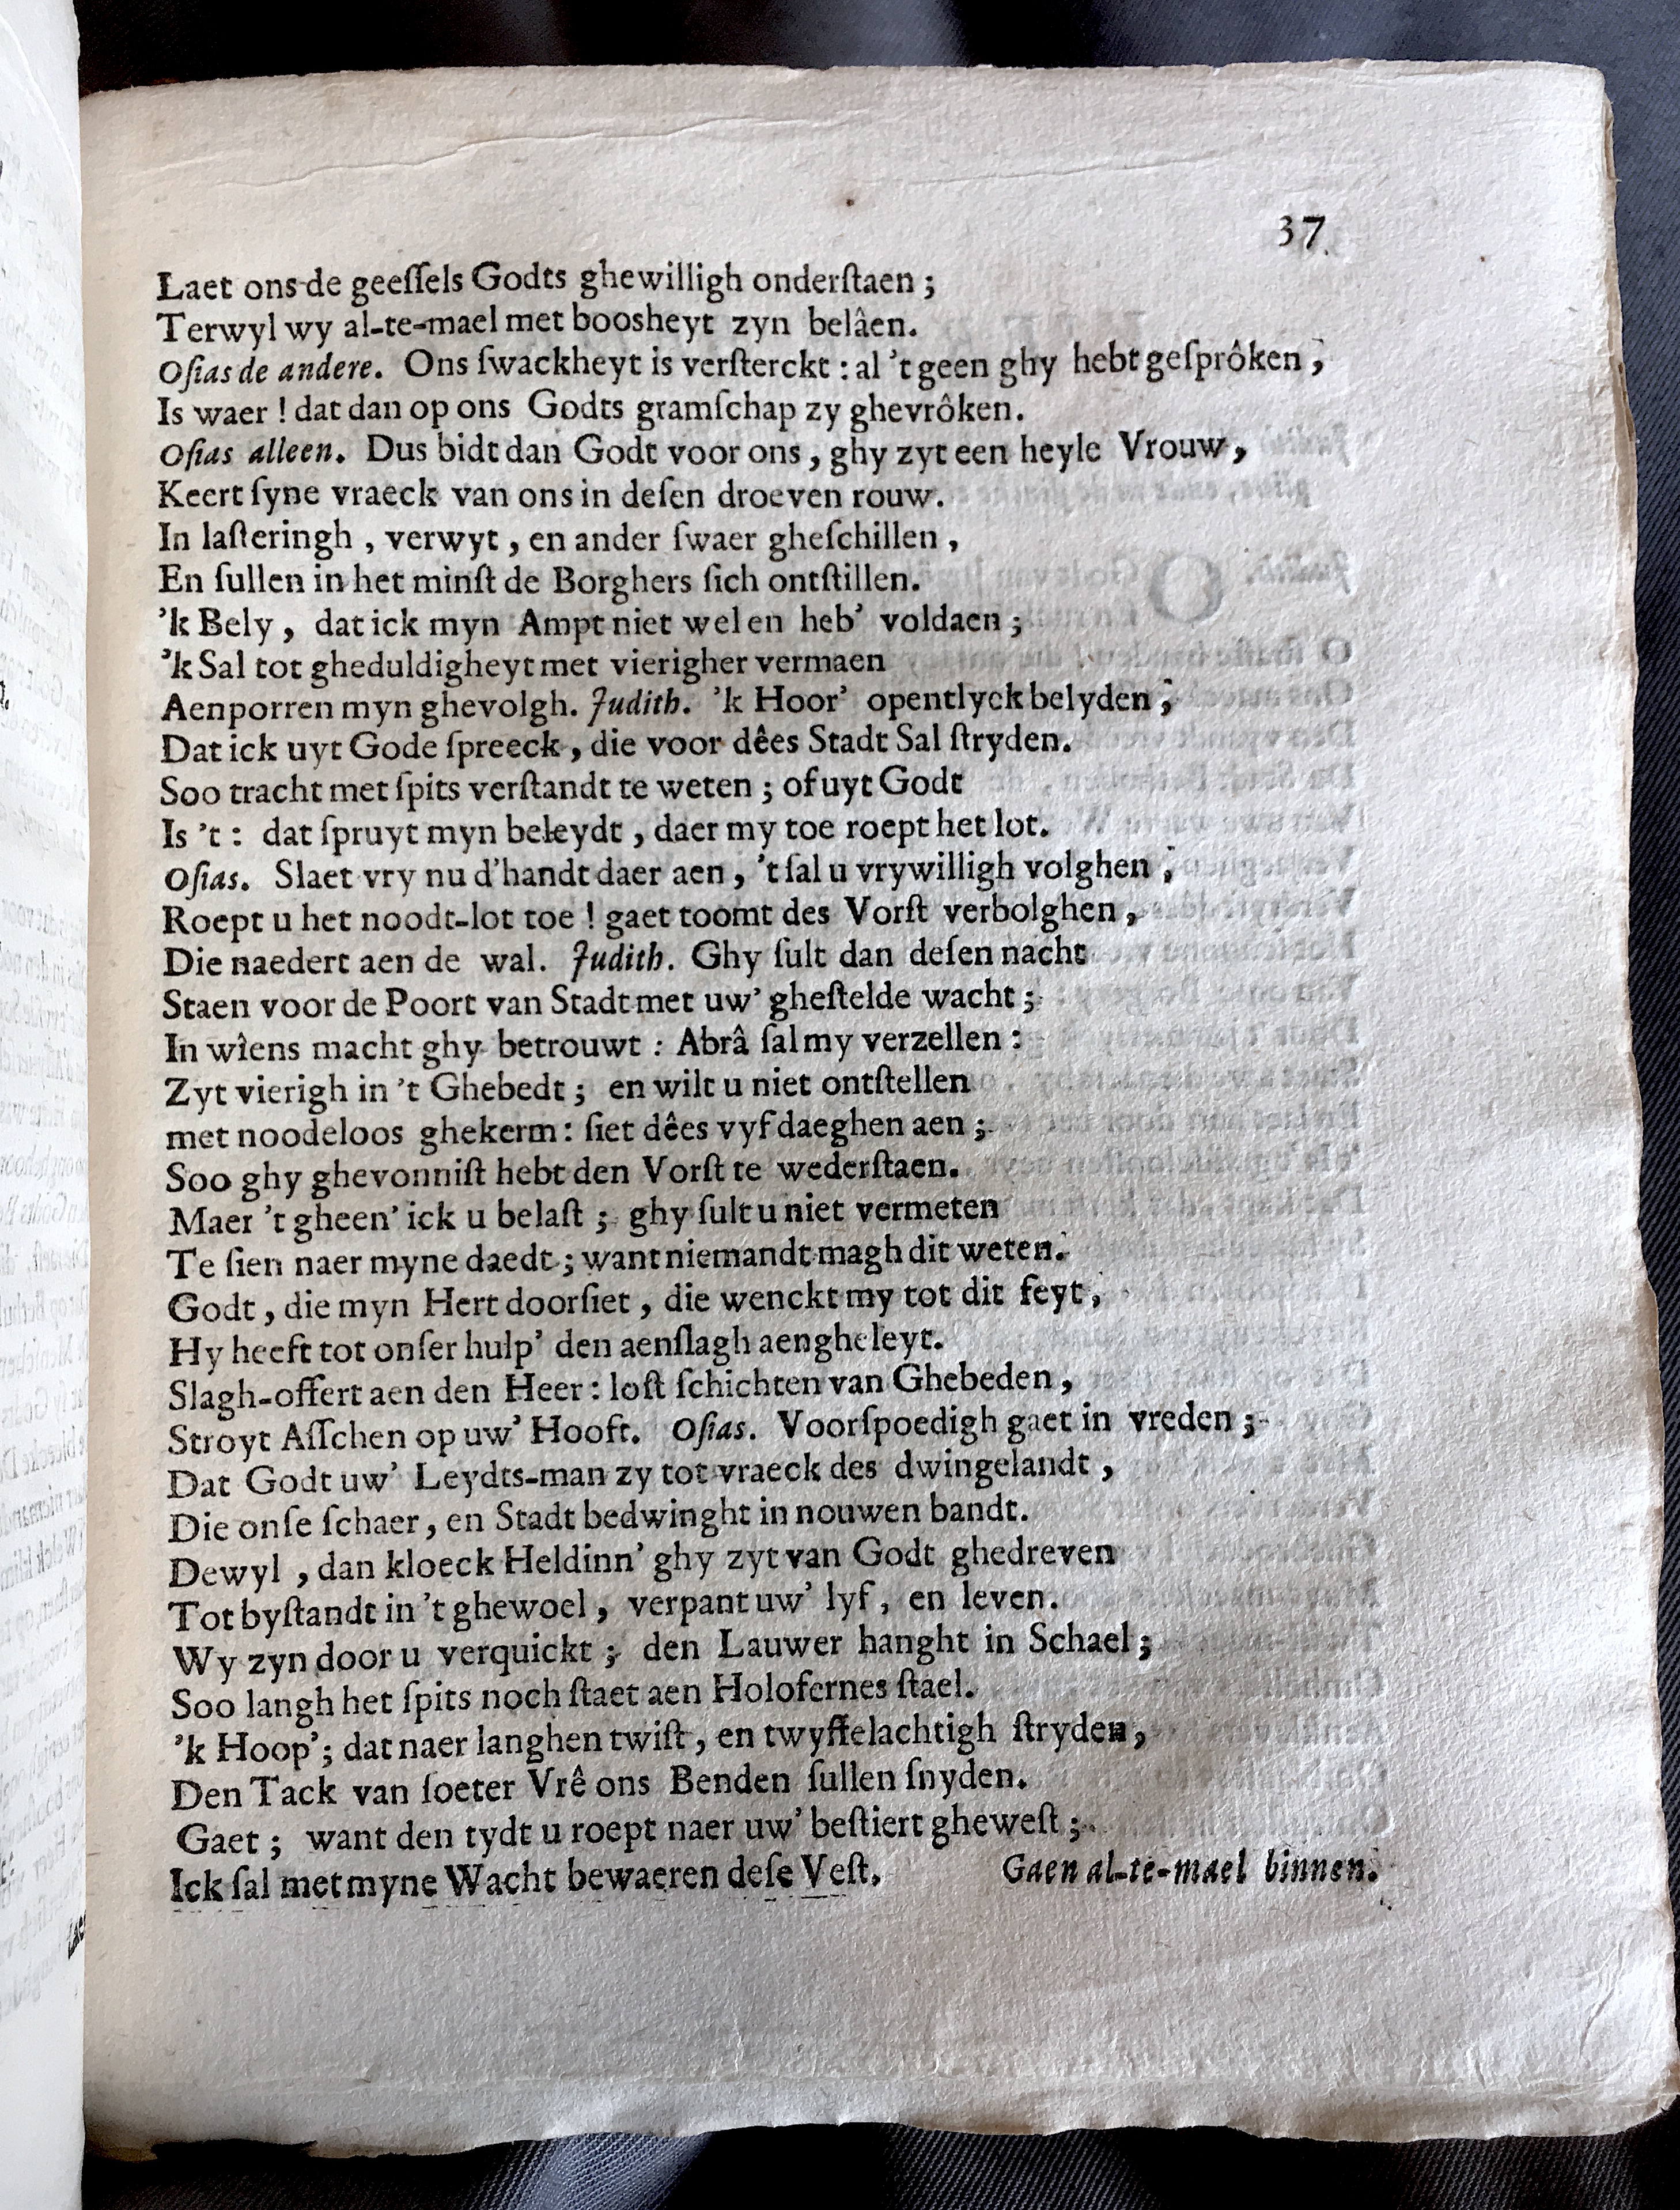 37
Laet ons de geeſſels Godts ghewilligh onderſtaen ;
Terwyl wy al-te-mael met boosheyt zyn belâen.
Oſias de andere. Ons ſwackheyt is verſterckt : al 't geen ghy hebt geſprôken ,
Is waer ! dat dan op ons Godts gramſchap zy ghevrôken.
Oſias alleen. Dus bidt dan Godt voor ons , ghy zyt een heyle Vrouw ,
Keert ſyne vraeck van ons in deſen droeven rouw.
In laſteringh , verwyt , en ander ſwaer gheſchillen ,
En ſullen in het minſt de Borghers ſich ontſtillen.
'k Bely , dat ick myn Ampt niet wel en heb' voldaen ;
'k Sal tot gheduldigheyt met vierigher vermaen
Aenporren myn ghevolgh. Judith. 'k Hoor' opentlyck belyden ,
Dat ick uyt Gode ſpreeck , die voor dêes Stadt Sal ſtryden.
Soo tracht met ſpits verſtandt te weten ; of uyt Godt
Is 't : dat ſpruyt myn beleydt , daer my toe roept het lot.
Oſias. Slaet vry nu d'handt daer aen , 't ſal u vrywilligh volghen ,
Roept u het noodt-lot toe ! gaet toomt des Vorſt verbolghen ,
Die naedert aen de wal. Judith. Ghy ſult dan deſen nacht
Staen voor de Poort van Stadt met uw' gheſtelde wacht ;
In wîens macht ghy betrouwt : Abrâ ſal my verzellen :
Zyt vierigh in 't Ghebedt ; en wilt u niet ontſtellen
met noodeloos ghekerm : ſiet dêes vyf daeghen aen ;
Soo ghy ghevonniſt hebt den Vorſt te wederſtaen.
Maer 't gheen' ick u belaſt ; ghy ſult u niet vermeten
Te ſien naer myne daedt ; want niemandt magh dit weten.
Godt , die myn Hert doorſiet , die wenckt my tot dit feyt ,
Hy heeft tot onſer hulp' den aenſlagh aengheleyt.
Slagh-offert aen den Heer : loſt ſchichten van Ghebeden ,
Stroyt Aſſchen op uw' Hooft. Oſias. Voorſpoedigh gaet in vreden ;
Dat Godt uw' Leydts-man zy tot vraeck des dwingelandt ,
Die onſe ſchaer , en Stadt bedwinght in nouwen bandt.
Dewyl , dan kloeck Heldinn' ghy zyt van Godt ghedreven
Tot byſtandt in 't ghewoel , verpant uw' lyf , en leven.
Wy zyn door u verquickt ; den Lauwer hanght in Schael ;
Soo langh het ſpits noch ſtaet aen Holofernes ſtael.
'k Hoop' ; dat naer langhen twiſt , en twyffelachtigh ſtryden ,
Den Tack van ſoeter Vrê ons Benden ſullen ſnyden.
Gaet ; want den tydt u roept naer uw' beſtiert gheweſt ;
Ick ſal met myne Wacht bewaeren deſe Veſt. Gaen al-te-mael binnen.